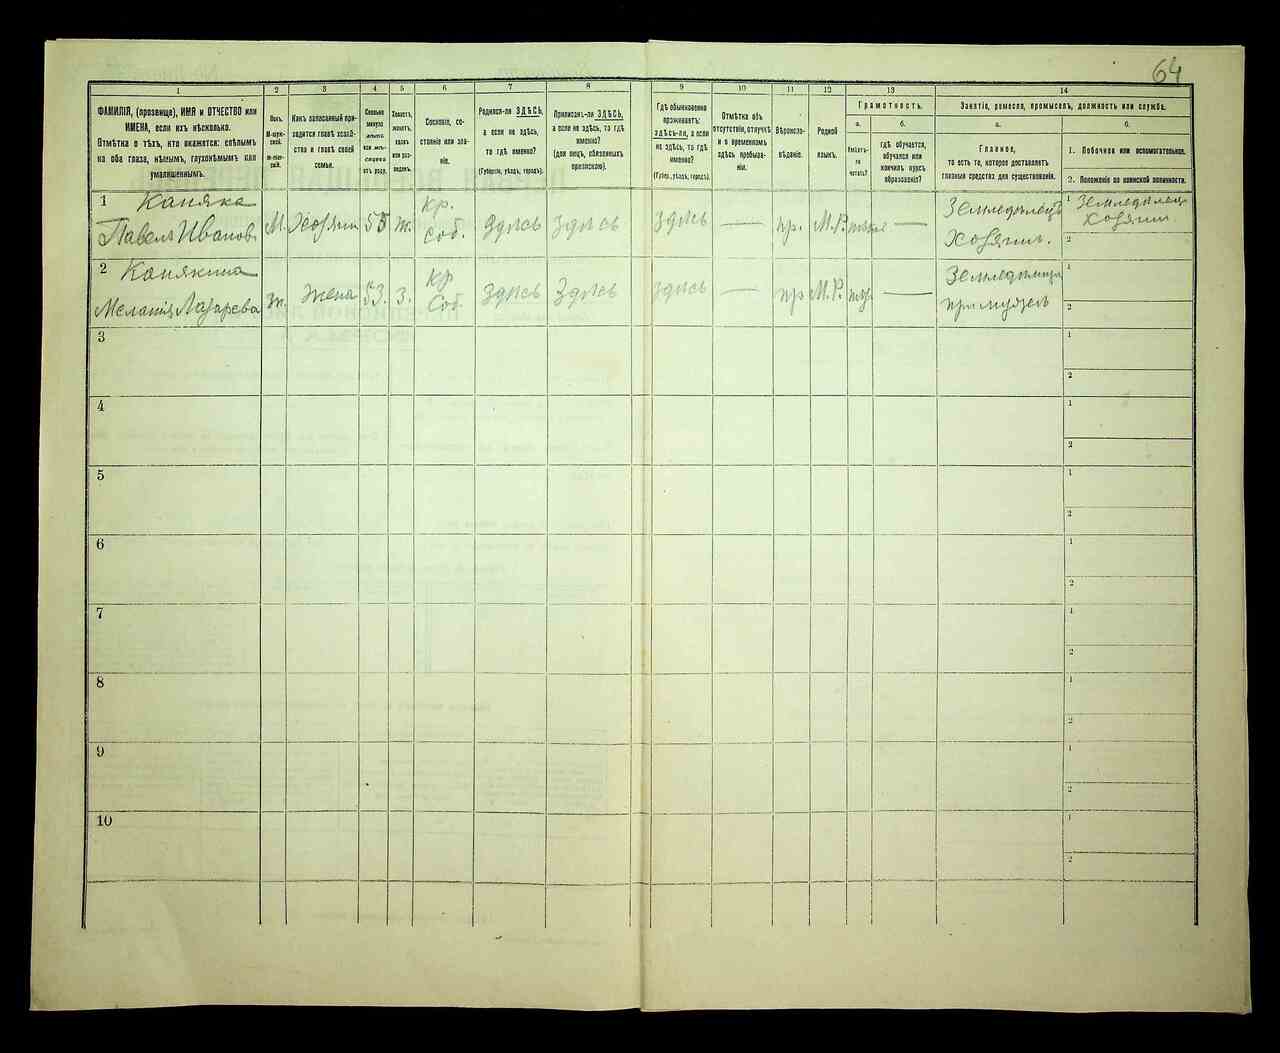 64
1
2
3
4
5
6
7
8
9
10
11
12
13
14
ФАМИЛІЯ, (прозвище), ИМЯ и ОТЧЕСТВО или
ИМЕНА, если ихъ нѣсколько.
Отмѣтка о тѣхъ, кто окажется: слѣпымъ
на оба глаза, нѣмымъ, глухонѣмымъ или
умалишеннымъ.
Полъ.
М-муж-
ской.
Ж-жен-
скій.
Какъ записанный при-
ходится главѣ хозяй-
ства и главѣ своей
семьи.
Сколько
минуло
лѣтъ
или мѣ-
сяцевъ
отъ роду.
Холостъ,
женатъ,
вдовъ
или раз-
веденъ.
Сословіе, со-
стояніе или зва-
ніе.
Родился-ли ЗДѢСЬ,
а если не здѣсь,
то гдѣ именно?
(Губернія, уѣздъ, городъ).
Приписанъ-ли ЗДѢСЬ,
а если не здѣсь, то гдѣ
именно?
(для лицъ, обязанныхъ
припискою).
Гдѣ обыкновенно
проживаетъ:
здѣсь-ли, а если
не здѣсь, то гдѣ
именно?
(Губер., уѣздъ, городъ).
Отмѣтка объ
отсутствіи, отлучкѣ
и о временномъ
здѣсь пребыва-
ніи.
Вѣроиспо-
вѣданіе.
Родной
языкъ.
Грамотность.
а.
Умѣетъ-
ли
читать?
б.
гдѣ обучается,
обучался или
кончилъ курсъ
образованія?
Занятіе, ремесло, промыселъ, должность или служба.
а.
Главное,
то есть то, которое доставляетъ
главныя средства для существованія.
б.
1. Побочное или вспомогательное.
2. Положеніе по воинской повинности.
1
Павелъ Ивановъ
М. Хозяинъ 55 ж. Кр.
Соб. Здѣсь Здѣсь
Здѣсь — пр. М.Р. —
Земледѣлецъ
Хозяинъ.
1 Земледѣлец
Хозяин.
2
2 Канякина
Меланія Лазарева
ж. жена 53. з. Кр
Соб. Здѣсь Здѣсь
Здѣсь — пр М.Р. —
при мужѣ
1
2
3
1
2
4
1
2
5
1
2
6
1
2
7
1
2
8
1
2
9
1
2
10
1
2